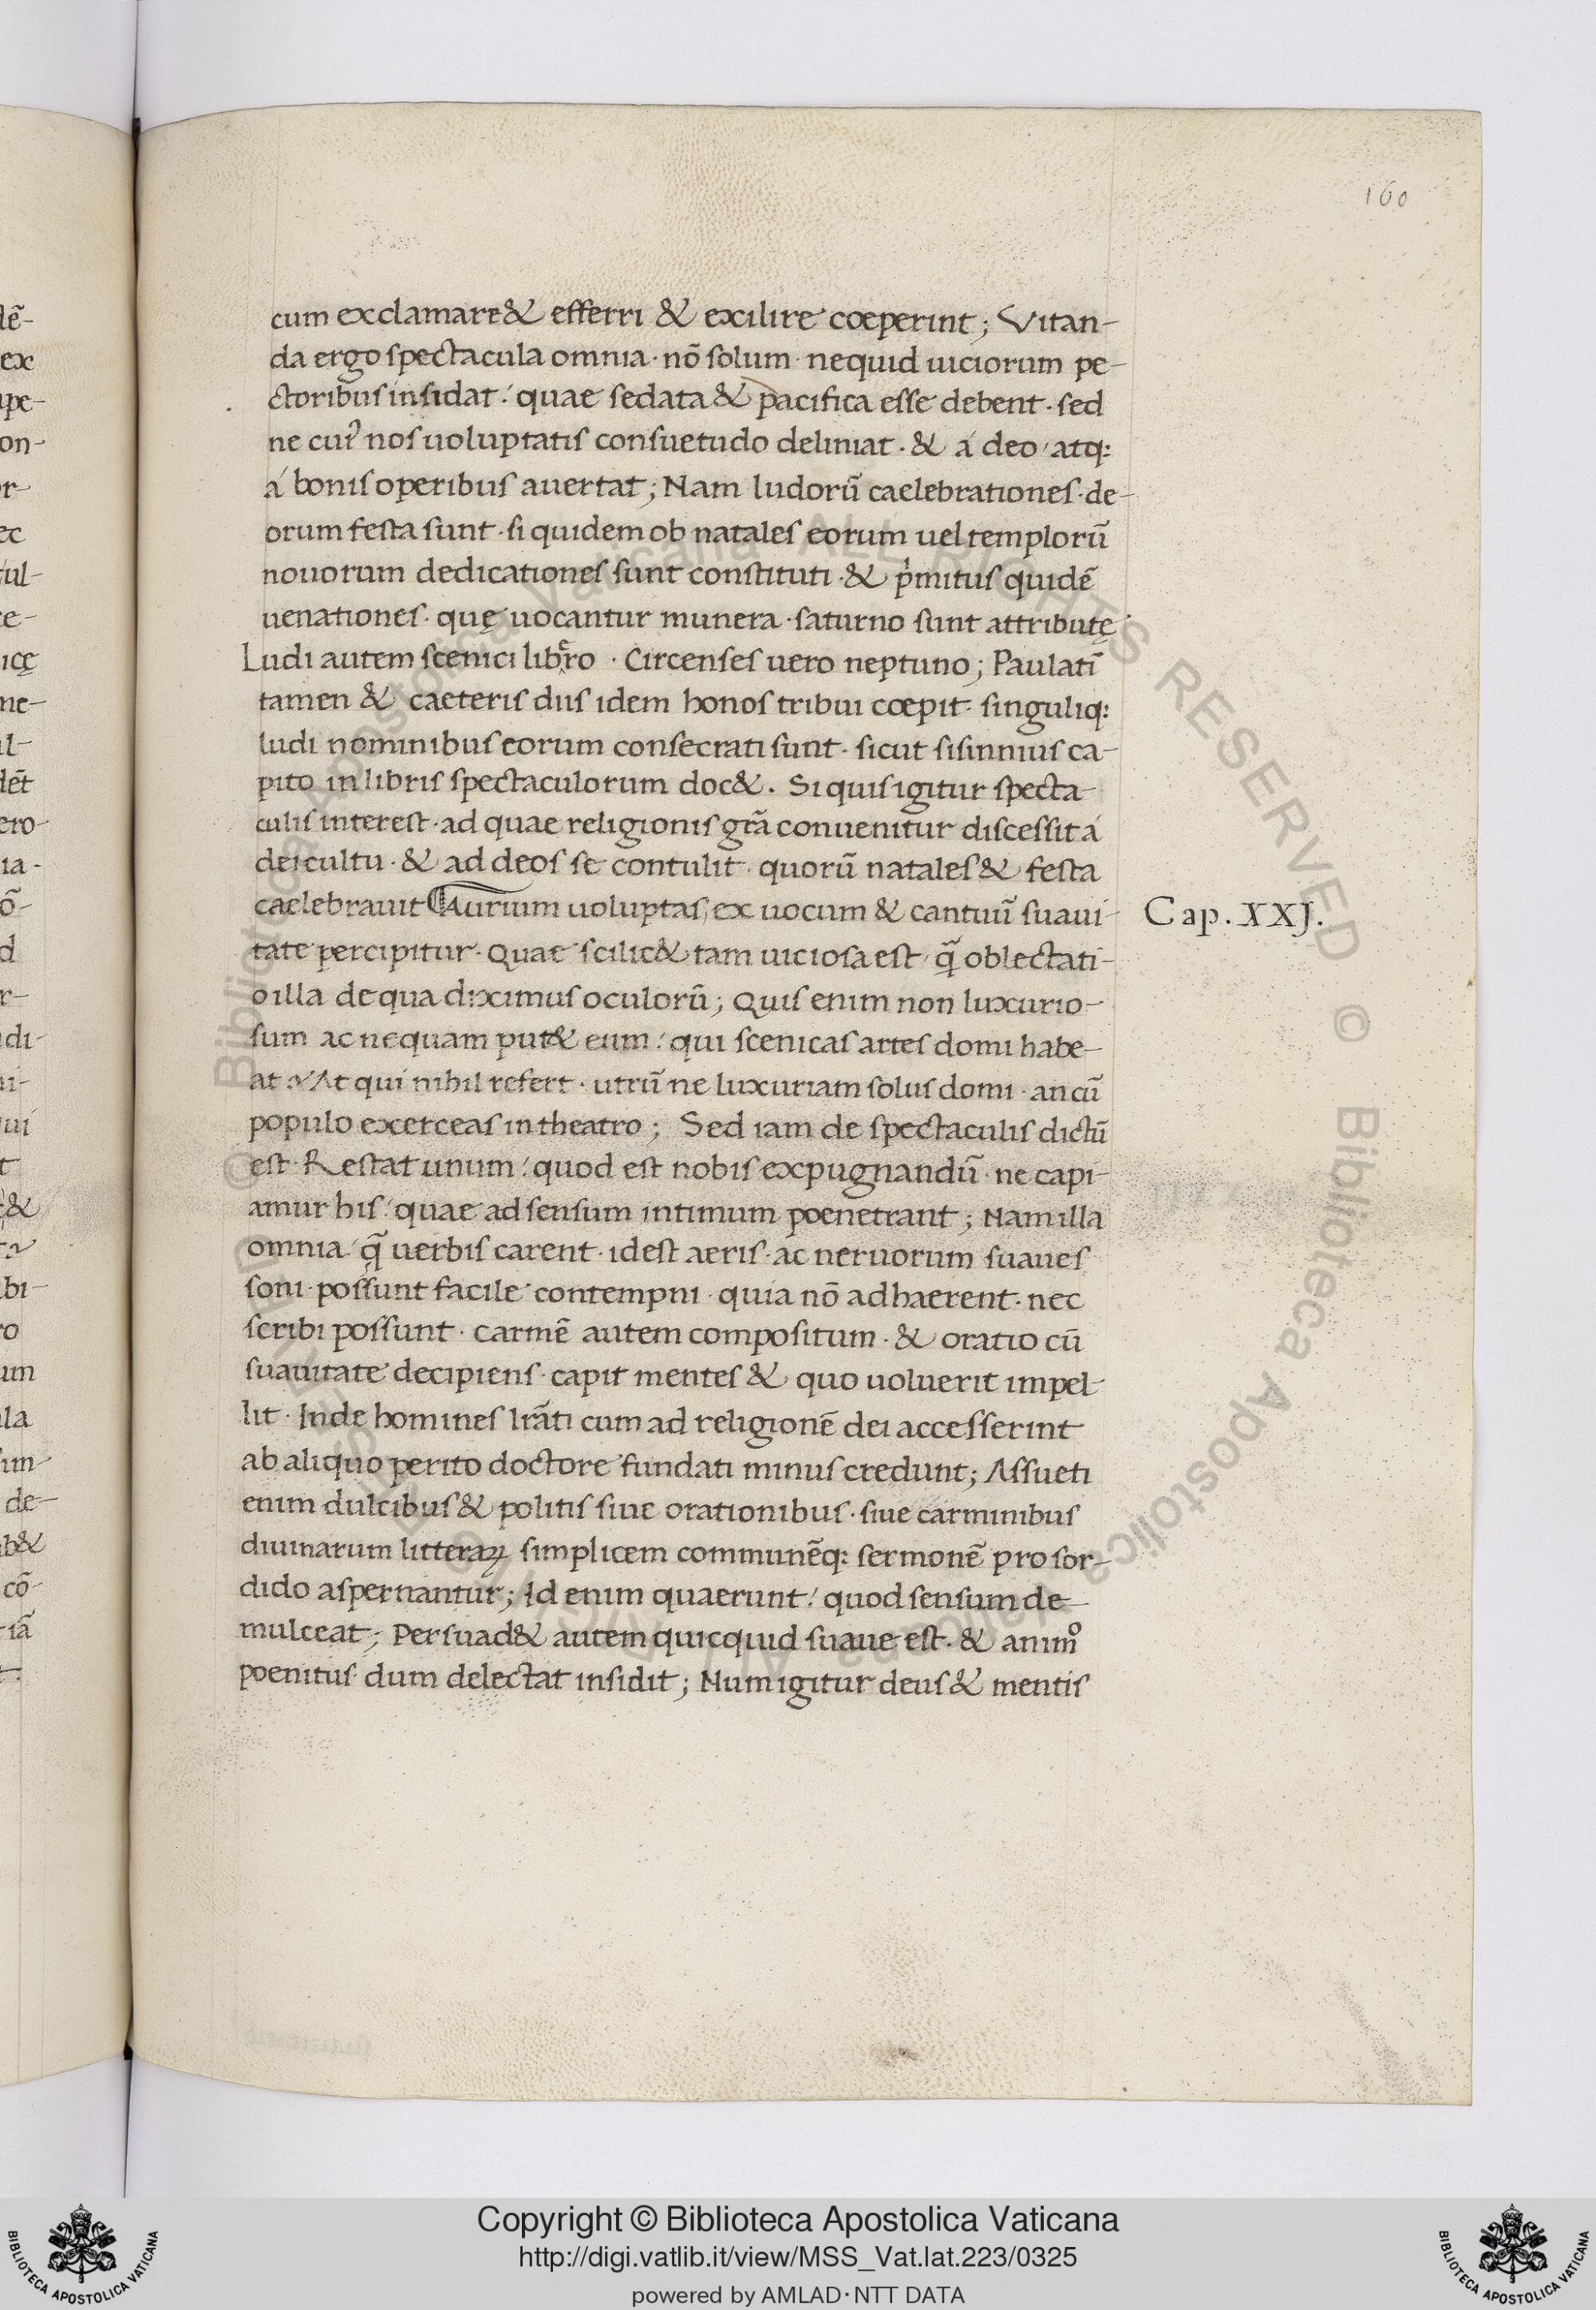 160
cum exclamare & efferri & exilire coeperint; Vitan-
da ergo spectacula omnia · nō solum · nequid uiciorum pe-
ctoribus insidat: quae sedata & pacifica esse debent · sed
ne cuiꝰ nos uoluptatis consuetudo deliniat · & á deo atq:
á bonis operibus auertat; Nam ludorū caelebrationes · de-
orum festa sunt · si quidem ob natales eorum uel templorū
nouorum dedicationes sunt constituti · & pͥmitus quidē
uenationes · quę uocantur munera · saturno sunt attributę
Ludi autem scenici libero · Circenses uero neptuno; Paulatī
tamen & caeteris diis idem honos tribui coepit · singuliq:
ludi nominibus eorum consecrati sunt · sicut sisinnius ca-
pito in libris spectaculorum doc&. Si quis igitur specta-
culis interest · ad quae religionis grā conuenitur discessit á
dei cultu · & ad deos se contulit · quorū natales & festa
caelebrauit Aurium uoluptas, ex uocum & cantuū suaui- Cap. XXJ.
tate percipitur · Quae scilic& tam uiciosa est, q̄ oblectati-
o illa de qua diximus oculorū; Quis enim non luxurio-
sum ac nequam put& eum: qui scenicas artes domi habe-
at? At qui nihil refert · utrū ne luxuriam solus domi · an cū
populo exerceas in theatro; Sed iam de spectaculis dictū
est · Restat unum: quod est nobis expugnandū · ne capi-
amur his: quae ad sensum intimum poenetrant; Nam illa
omnia q̄ uerbis carent · id est aeris · ac neruorum suaues
soni · possunt facile contempni · quia nō adhaerent · nec
scribi possunt · carmē autem compositum · & oratio cū
suauitate decipiens · capit mentes & quo uoluerit impel-
lit · Inde homines lrāti cum ad religionē dei accesserint
ab aliquo perito doctore fundati minus credunt; Assueti
enim dulcibus & politis siue orationibus · siue carminibus
diuinarum litteraꝝ simplicem communēq: sermonē pro sor-
dido aspernantur; Id enim quaerunt: quod sensum de-
mulceat; Persuad& autem quicquid suaue est · & animͦ
poenitus dum delectat insidit; Num igitur deus & mentis
Copyright © Biblioteca Apostolica Vaticana
http://digi.vatlib.it/view/MSS_Vat.lat.223/0325
powered by AMLAD·NTT DATA